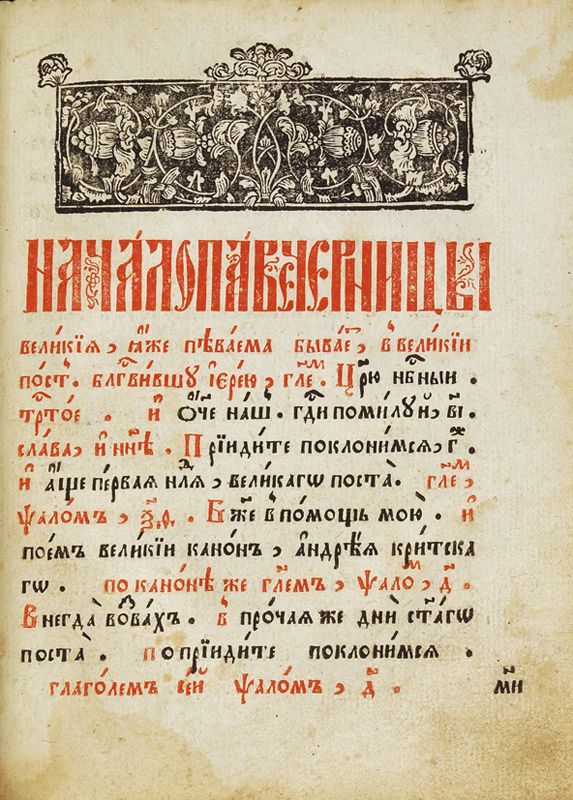 НАЧА́ЛО ПА́ВЕЧЕ́РНИЦЫ
вели́кїѧ, ꙗ҆́же пѣва́ема быва́еⷮ, в̾ вели́кїи
по́стъ. бл҃гⷭ҇ви́вшꙋ і҆ере́ю, гл҃еⷨ. Цр҃ю нбⷭ҇ныи .
трⷭ҇то́е . и҆ Ѻ҆́ч҃е на́шъ . гдⷭ҇и поми́лꙋй, в҃і .
сла́ва, и҆ ны́нѣ . Прїиди́те поклони́мсѧ, г҃ⷤ .
и҆ а҆́ще пе́рваѧ нⷣлѧ, вели́кагѡ поста̀ . гл҃еⷨ,
ѱало́мъ, ѯ҃ѳ . Бж҃е в̾ по́мощь мою̀ . и҆
пое́мъ вели́кїи кано́нъ, а҆ндре́ѧ кри́тска
гѡ . по кано́нѣ же гл҃емъ, ѱало́ⷨ, д҃ .
Внегда̀ воⷥва́хъ . в̾ про́чаѧ же дни̑ ст҃а́гѡ
поста̀ . по прїиди́те поклони́мсѧ .
глаго́лемъ се́й ѱало́мъ, д҃ . мⷭ҇и